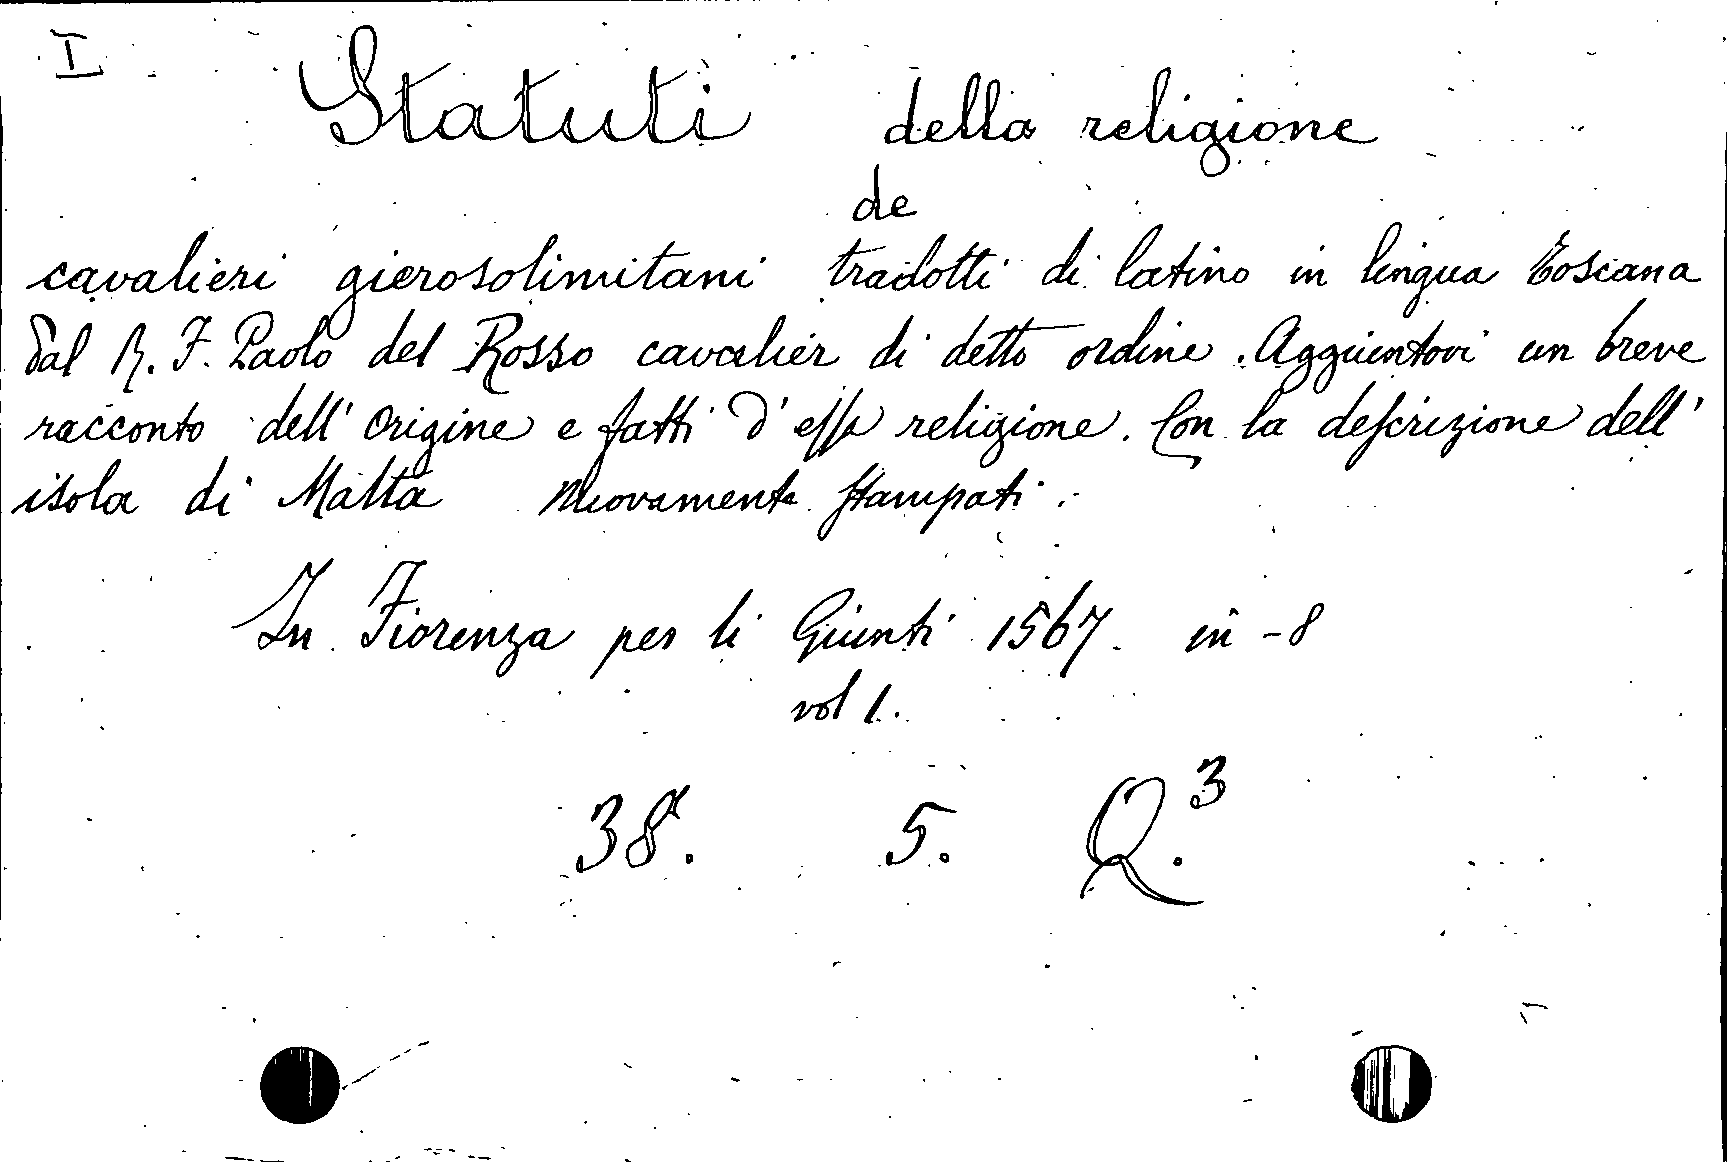 I
Statuti della religione
de
cavalieri gierosolimitani tradotti di latino in lingua toscana
dal R. F. Paolo del Rosso cavalier di detto ordine. Aggiuntovi un breve
racconto dell' origine e fatti d' essa religione. Con la descrizione dell'
isola di Malta nuovamente stampati.
In Fiorenza per li Giunti 1567. in -8
vol 1.
38. 5. Q.³